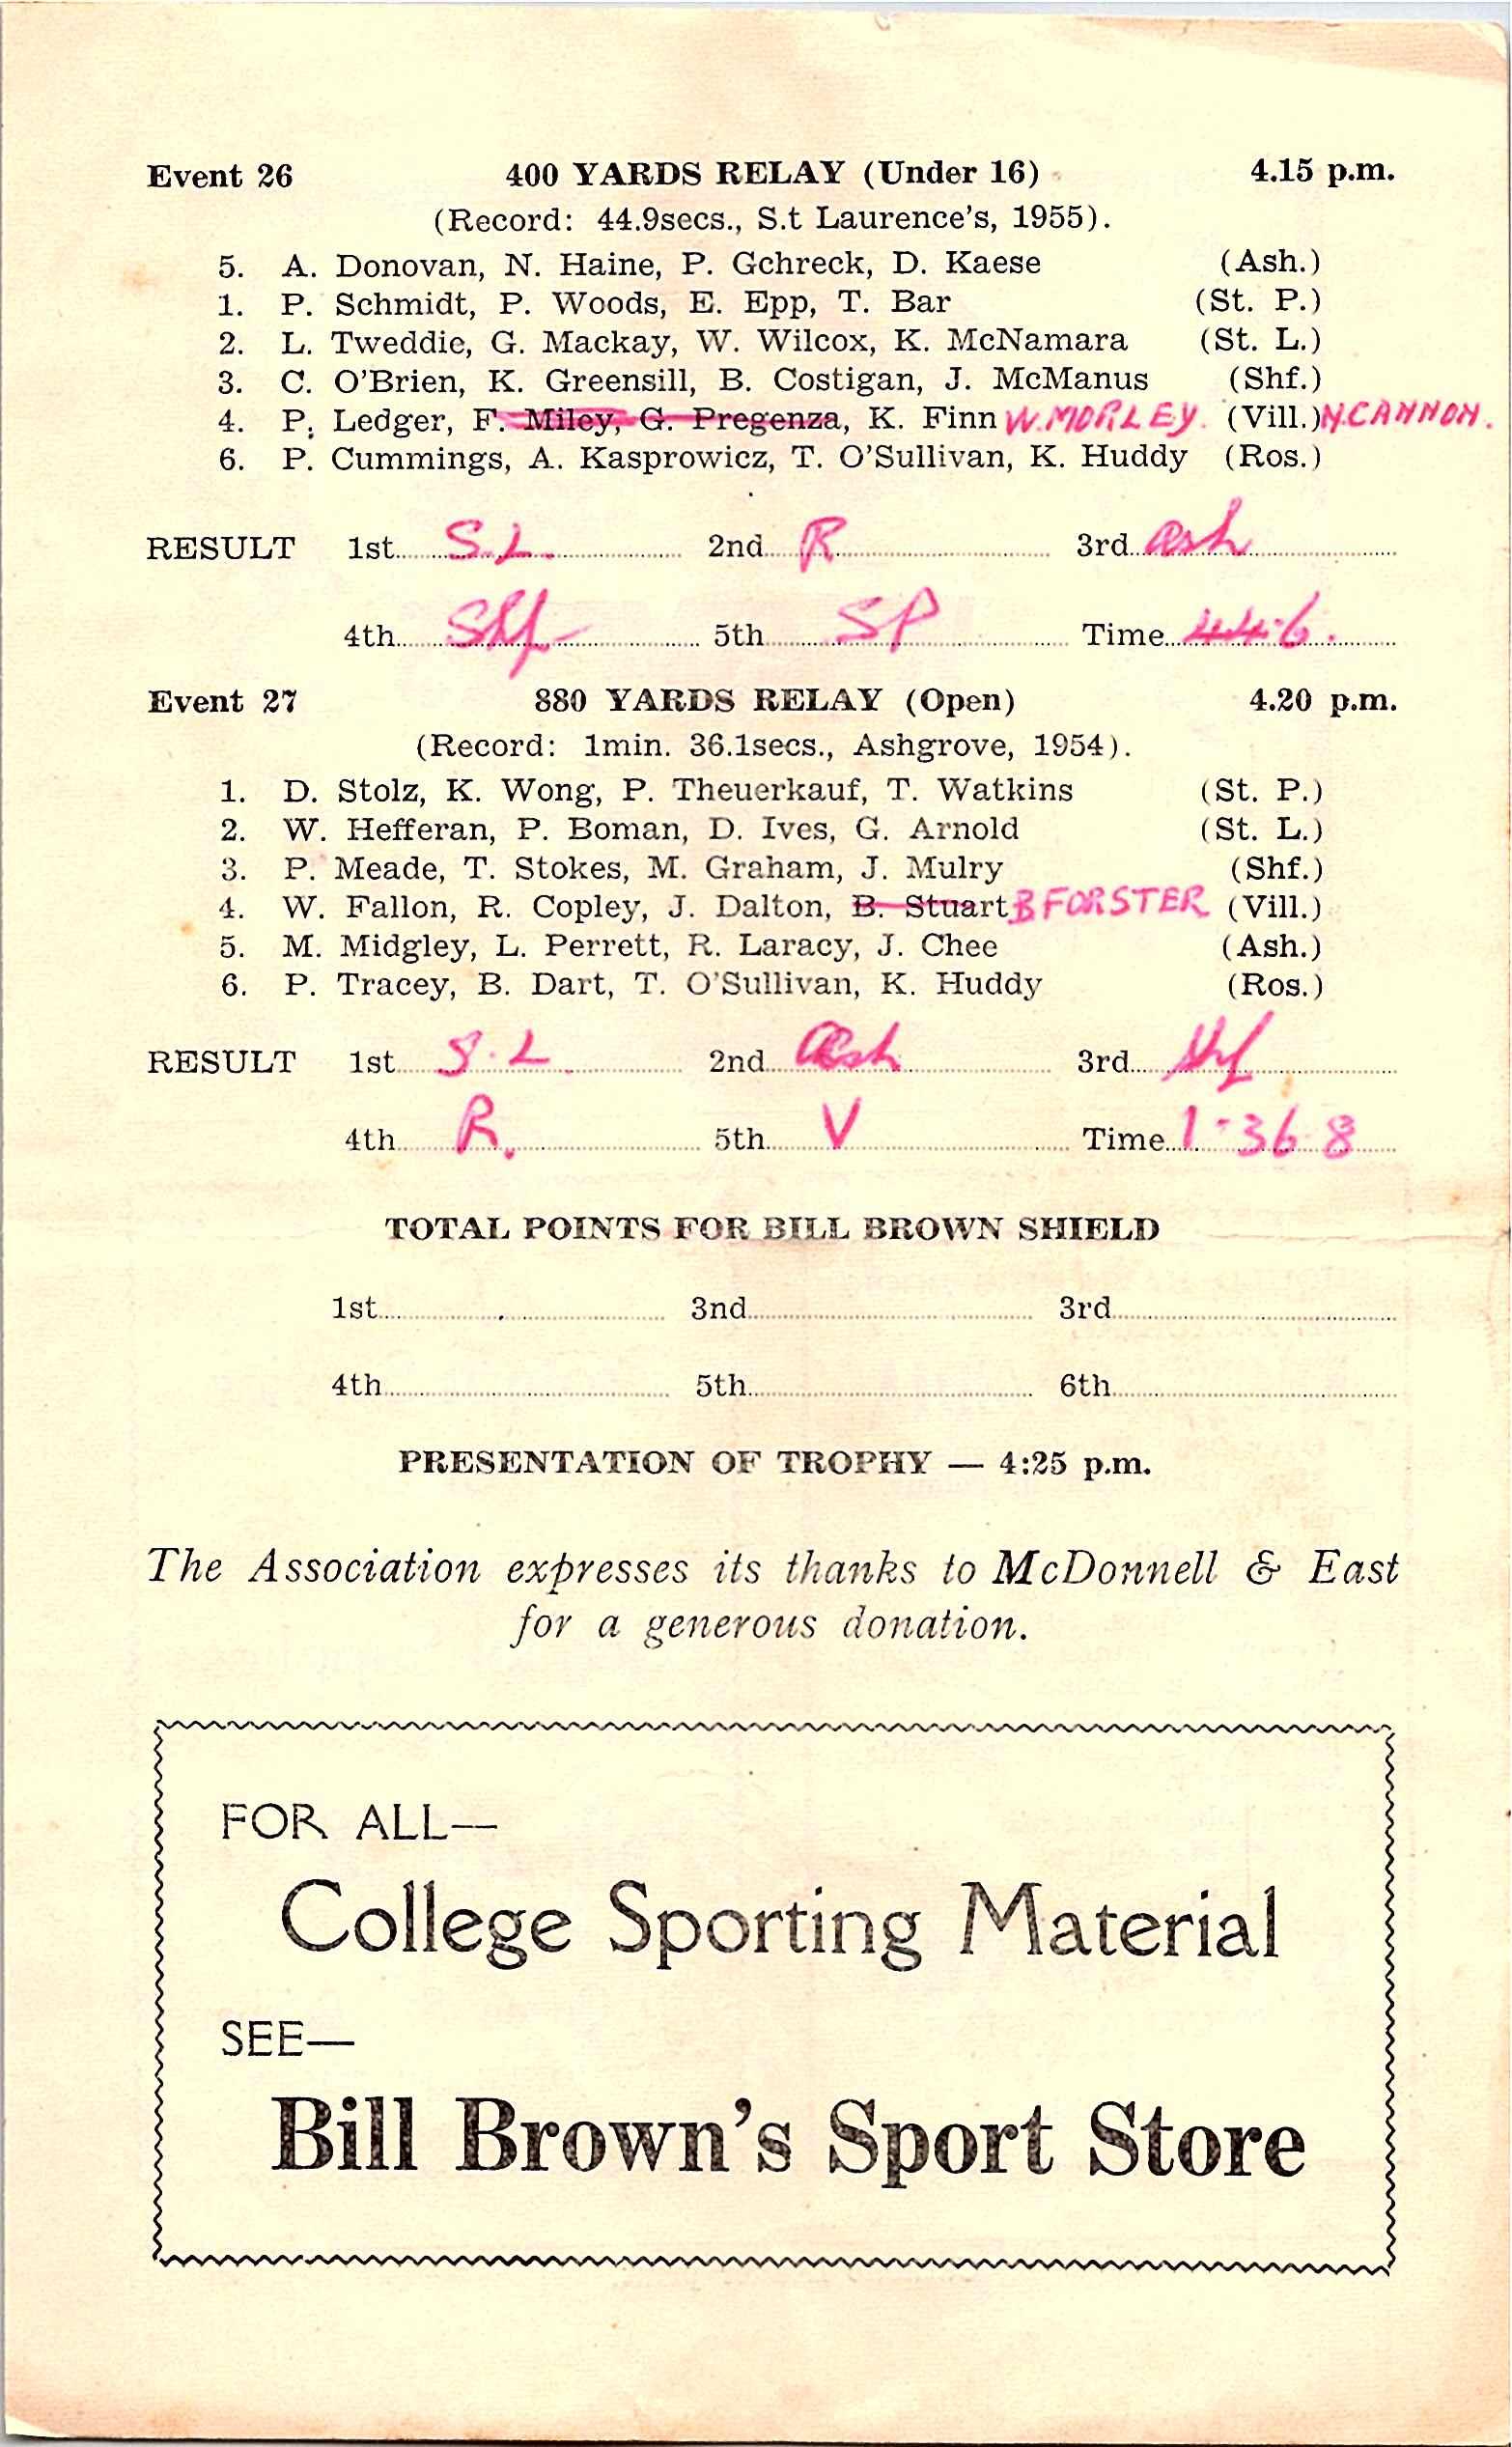 Event 26 400 YARDS RELAY (Under 16) 4.15 p.m.
(Record: 44.9secs., S.t Laurence's, 1955).
5. A. Donovan, N. Haine, P. Gchreck, D. Kaese (Ash.)
1. P. Schmidt, P. Woods, E. Epp, T. Bar (St. P.)
2. L. Tweddie, G. Mackay, W. Wilcox, K. McNamara (St. L.)
3. C. O'Brien, K. Greensill, B. Costigan, J. McManus (Shf.)
4. P. Ledger, F. Miley, G. Pregenza, K. Finn W. MORLEY. (Vill.) N. CANNON.
6. P. Cummings, A. Kasprowicz, T. O'Sullivan, K. Huddy (Ros.)
RESULT 1st S.L. 2nd R 3rd Ash
4th Shf 5th SP Time 44.6.
Event 27 880 YARDS RELAY (Open) 4.20 p.m.
(Record: 1min. 36.1secs., Ashgrove, 1954).
1. D. Stolz, K. Wong, P. Theuerkauf, T. Watkins (St. P.)
2. W. Hefferan, P. Boman, D. Ives, G. Arnold (St. L.)
3. P. Meade, T. Stokes, M. Graham, J. Mulry (Shf.)
4. W. Fallon, R. Copley, J. Dalton, B. Stuart B FORSTER (Vill.)
5. M. Midgley, L. Perrett, R. Laracy, J. Chee (Ash.)
6. P. Tracey, B. Dart, T. O'Sullivan, K. Huddy (Ros.)
RESULT 1st S.L. 2nd Ash 3rd Shf
4th R. 5th V Time 1-36.8
TOTAL POINTS FOR BILL BROWN SHIELD
1st 3nd 3rd
4th 5th 6th
PRESENTATION OF TROPHY — 4:25 p.m.
The Association expresses its thanks to McDonnell & East
for a generous donation.
FOR ALL—
College Sporting Material
SEE—
Bill Brown's Sport Store